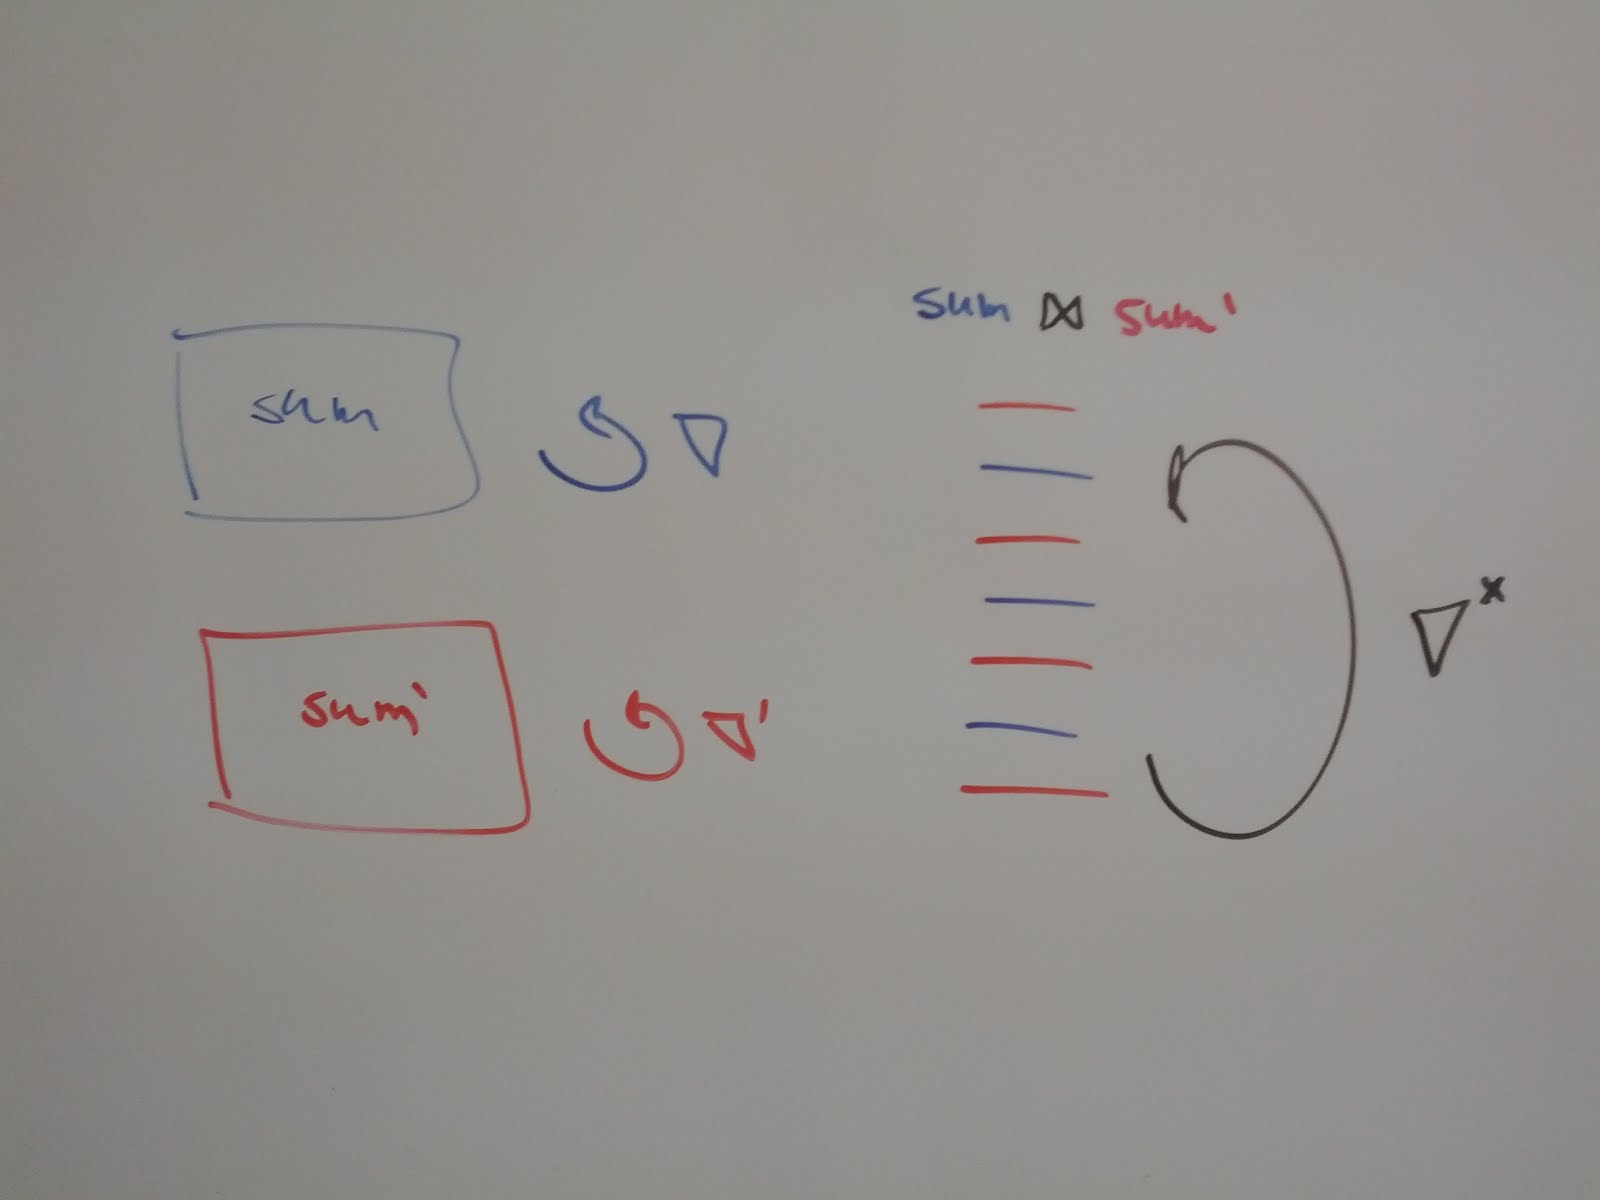 sum ⋈ sum'
sum ∇
sum' ∇'
∇ˣ